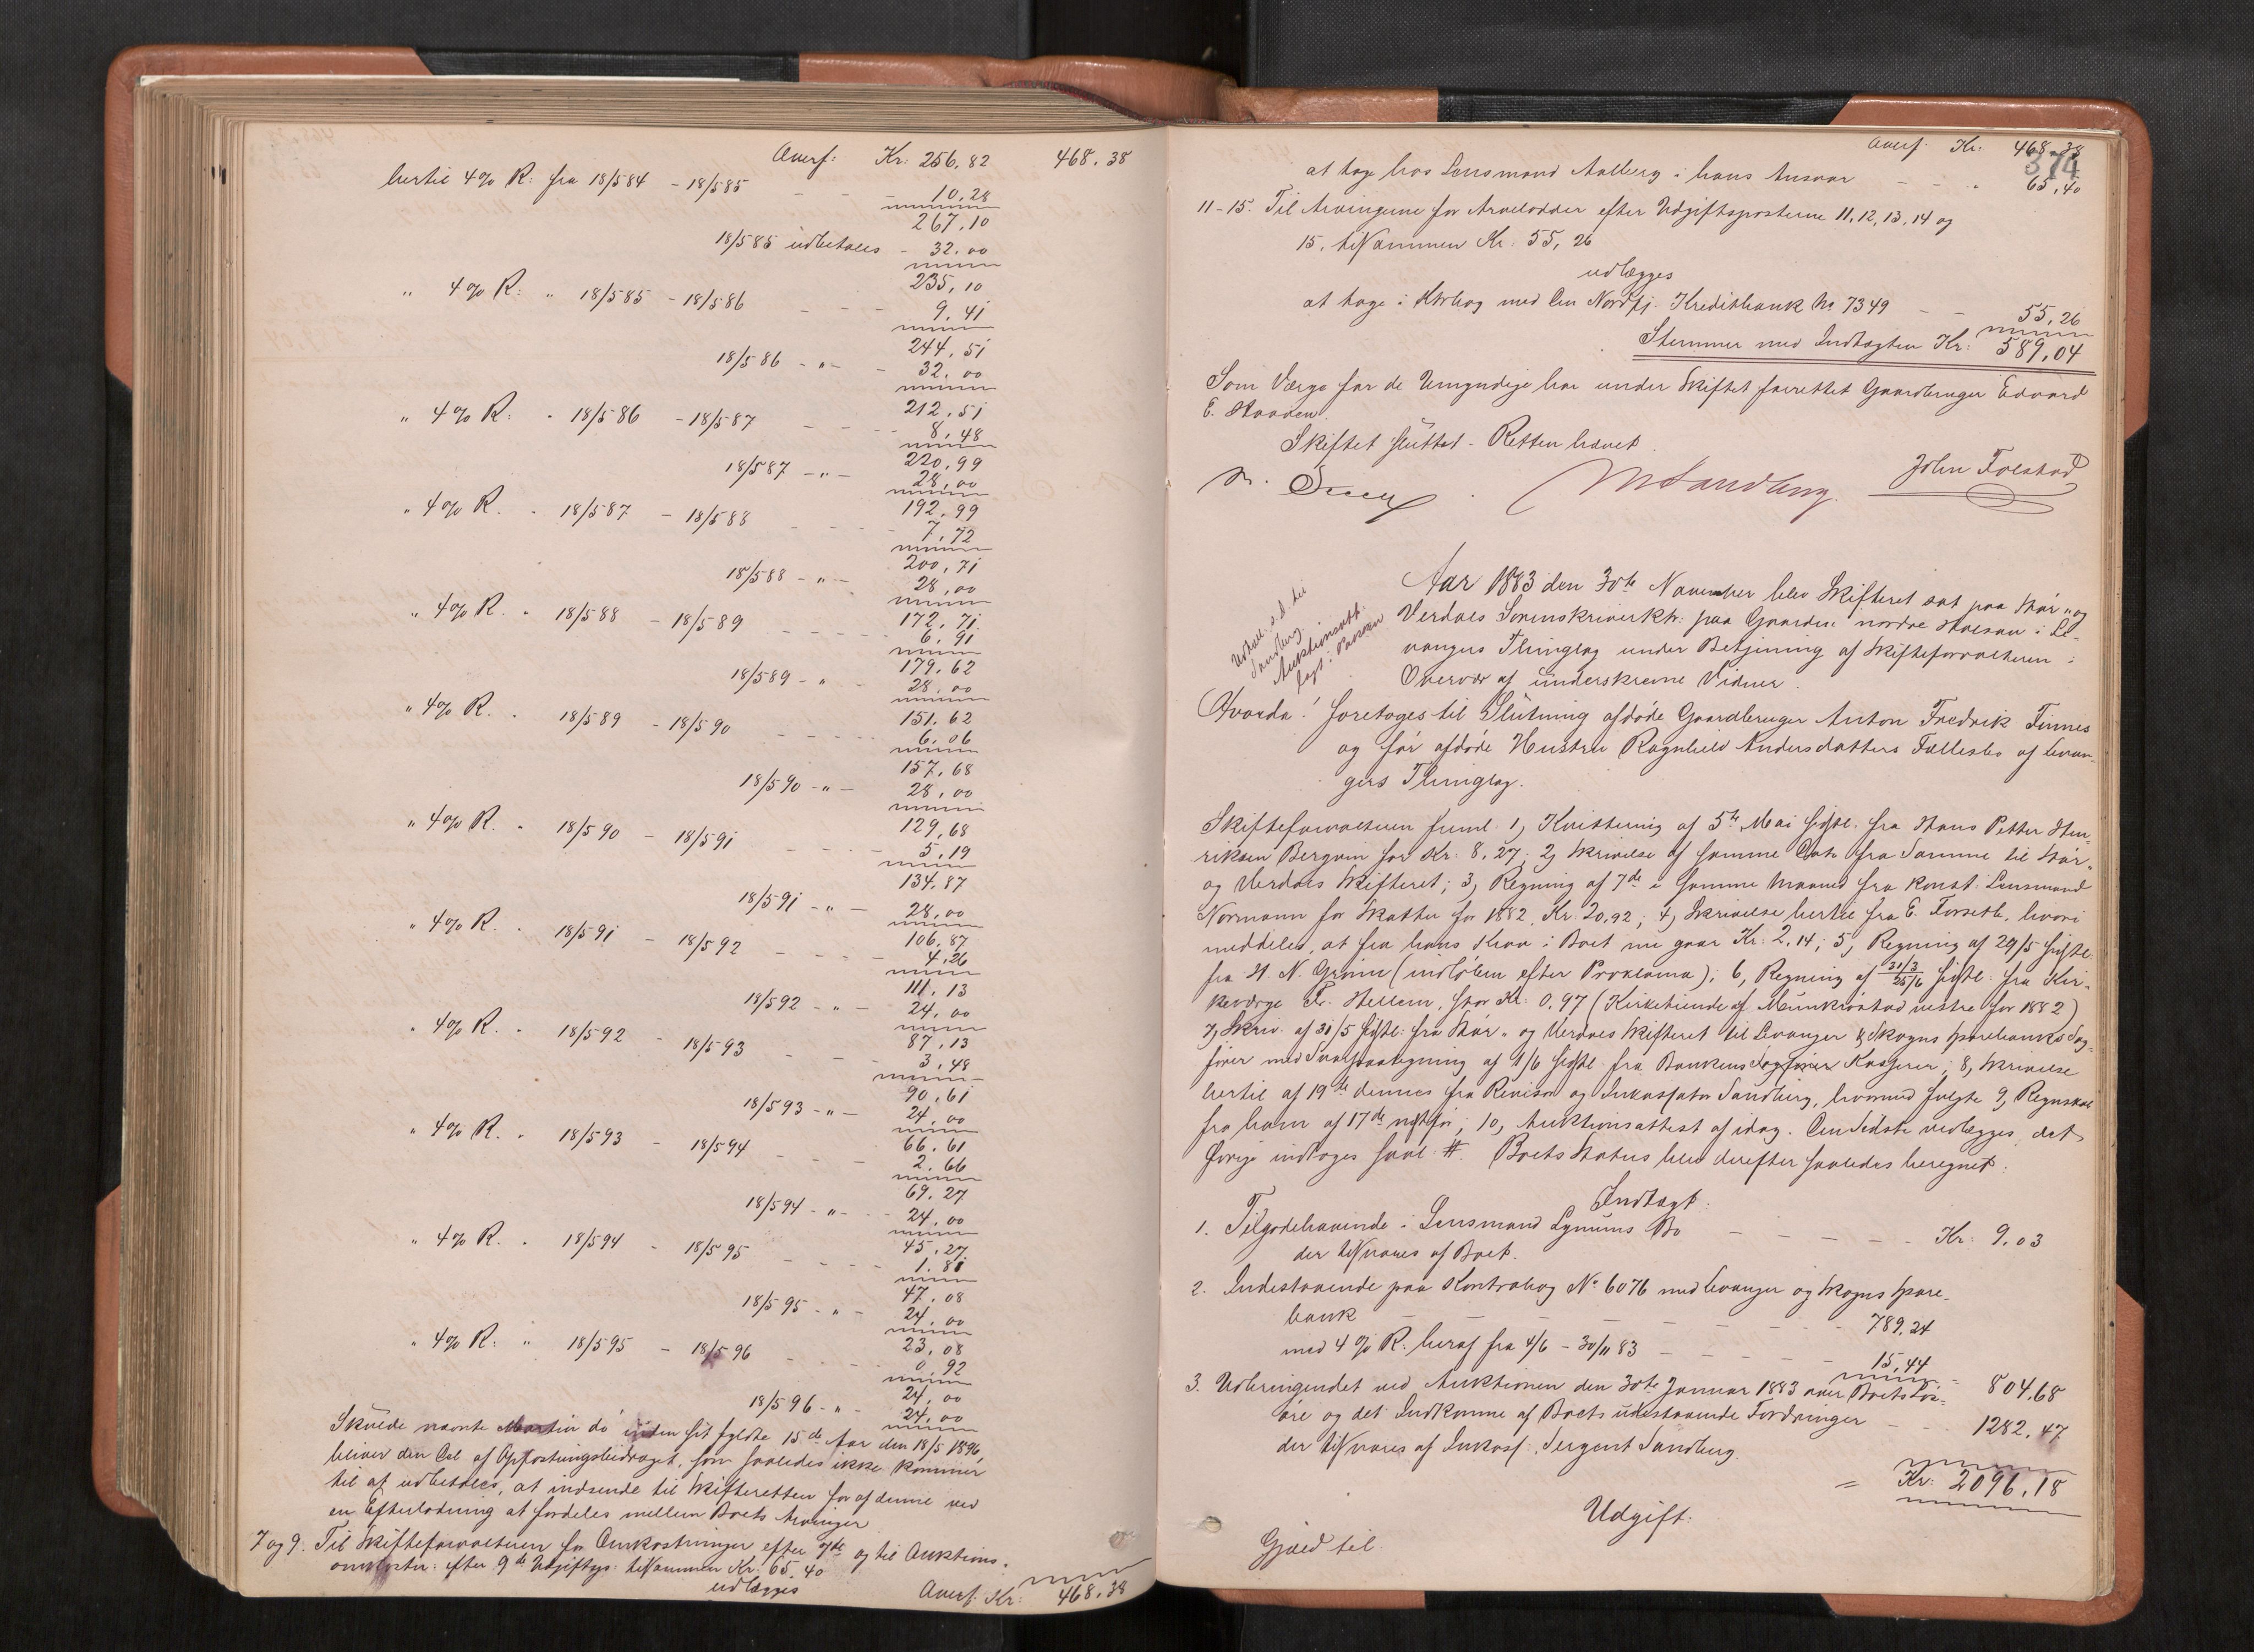 Overf: Kr: 256,82 468.38
hertil 4% R: fra 18/5 84 - 18/5 85 - - - 10,28
267,10
18/5 85 udbetales - 32,00
235,10
" 4% R: " 18/5 85 - 18/5 86 - - - 9,41
244,51
18/5 86 - " - - 32,00
212,51
" 4% R: " 18/5 86 - 18/5 87 - - - 8,48
220,99
18/5 87 - " - 28,00
192,99
" 4% R. " 18/5 87 - 18/5 88 - - - 7,72
200,71
18/5 88 - " - 28,00
172,71
" 4% R. " 18/5 88 - 18/5 89 - - - 6,91
179,62
18/5 89 - " - 28,00
151,62
" 4% R. " 18/5 89 - 18/5 90 - - - 6,06
157,68
18/5 90 - " - 28,00
129,68
" 4% R. " 18/5 90 - 18/5 91 - - - 5,19
134,87
18/5 91 - " - 28,00
106,87
" 4% R. " 18/5 91 - 18/5 92 - - - 4,26
111,13
18/5 92 - " - 24,00
87,13
" 4% R. " 18/5 92 - 18/5 93 - - - 3,48
90,61
18/5 93 - " - 24,00
66,61
" 4% R. " 18/5 93 - 18/5 94 - - - 2,66
69,27
18/5 94 - " - 24,00
45,27
" 4% R. " 18/5 94 - 18/5 95 - - - 1.81
47,08
18/5 95 - " - 24,00
23,08
" 4% R: " 18/5 95 - 18/5 96 - - - 0,92
24,00
18/5 96 - " - 24,00
Skulde nævnte Martin dø inden sit fyldte 15de Aar den 18/5 1896,
bliver den Del af Opfostringsbidraget, som saaledes ikke kommer
til at udbetales, at indsende til Skifteretten for af denne ved
en Efterlodning at fordeles mellem Boets Arvinger
7 og 9. Til Skifteforvalteren for Omkostninger efter 7de og til Auktions-
omkostn: efter 9de Udgiftsp: tilsammen Kr. 65.40
udlægges
Overf. Kr: 468.38
Overf. Kr: 468.38
374
at tage hos Lensmand Aalberg i hans Ansvar - - - 65,40
11-15. Til Arvingerne for Arvelodder efter Udgiftsposterne 11, 12, 13, 14 og
15, tilsammen Kr. 55,26
udlægges
at tage i Ktrbog med Den Nordfj. Kreditbank No 7349 - - 55,26
Stemmer med Indtægten Kr: 589,04
Som Værge for de Umyndige har under Skiftet forrettet Gaardbruger Edvard
E. Haaden.
Skiftet sluttet - Retten hævet.
M Sandberg. John Folstad
Aar 1883 den 30te November blev Skifteret sat paa Stør- og
Verdals Sorenskriverkt: paa Gaarden nordre Halsan i Le-
vangers Thinglag under Betjening af Skifteforvalteren i
Overvær af underskrevne Vidner.
Udskr. s. D. til
Sandberg.
Auktionsatt.
lagt i
Hvorda! foretoges til Slutning afdøde Gaardbruger Anton Fredrik Finnes
og før afdøde Hustru Ragnhild Andersdatters Fællesbo af Levan-
gers Thinglag.
Skifteforvalteren freml. 1, Kvittering af 5te Mai sidstl. fra Hans Petter Hen-
riksen Bergvin for Kr: 8,27; 2, Skrivelse af samme Dato fra Samme til Stør-
og Verdals Skifteret; 3, Regning af 7de i samme Maaned fra konst. Lensmand
Normann for Skatter for 1882. Kr: 20,92; 4, Skrivelse hertil fra E. Forseth, hvori
meddeles, at fra hans Krav i Boet nu gaar Kr: 2,14; 5, Regning af 29/5 sidstl.
fra H. N. Grønn (indløben efter Proklama); 6, Regning af 31/3 25/6 sidstl. fra Kir-
keværge Fr. Hellem, stor Kr: 0,97 (Kirketiende af Munkrøstad vestre for 1882)
7, Skriv. af 31/5 sidstl: fra Stør- og Verdals Skifteret til Levanger & Skogns Sparebanks Sag-
fører med Svarspaategning af 4/6 sidstl. fra Bankens Sagfører Kasserer; 8, Skrivelse
hertil af 19de dennes fra Revisor og Inkassator Sandberg, hvormed fulgte 9, Regnskab
fra ham af 17de nstfor; 10, Auktionsattest af idag. Den sidste vedlægges, det
Øvrige indtages saal. #. Boets Status blev derefter saaledes beregnet:
Indtægt:
1. Tilgodehavende i Lensmand Lynums Bo - - - - - Kr: 9.03
der tilsvares af Boet.
2. Indestaaende paa Kontrabog No 6076 med Levanger og Skogns Spare-
bank - - - - - - - 789,24
med 4% R: heraf fra 4/6 - 30/11 83 - - - - 15,44 804,68
3. Udbringendet ved Auktionen den 30te Januar 1883 over Boets Løs-
øre og det Indkomne af Boets udestaaende Fordringer - - 1282,47
der tilsvares af Inkass. Sergent Sandberg.
= Kr: 2096,18
Udgift:
Gjæld til